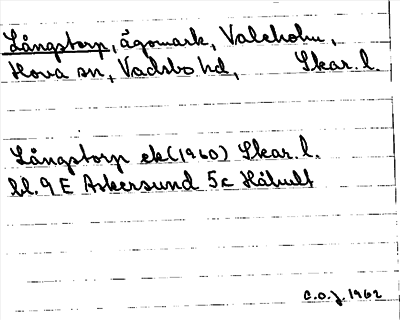 Långstorp, ägomark, Valeholm,
Hova sn, Vadsbo hd, Skar. l
Långstorp ek (1960) Skar. l.
bl. 9 E Askersund 5c Håhult
C.O.J. 1962